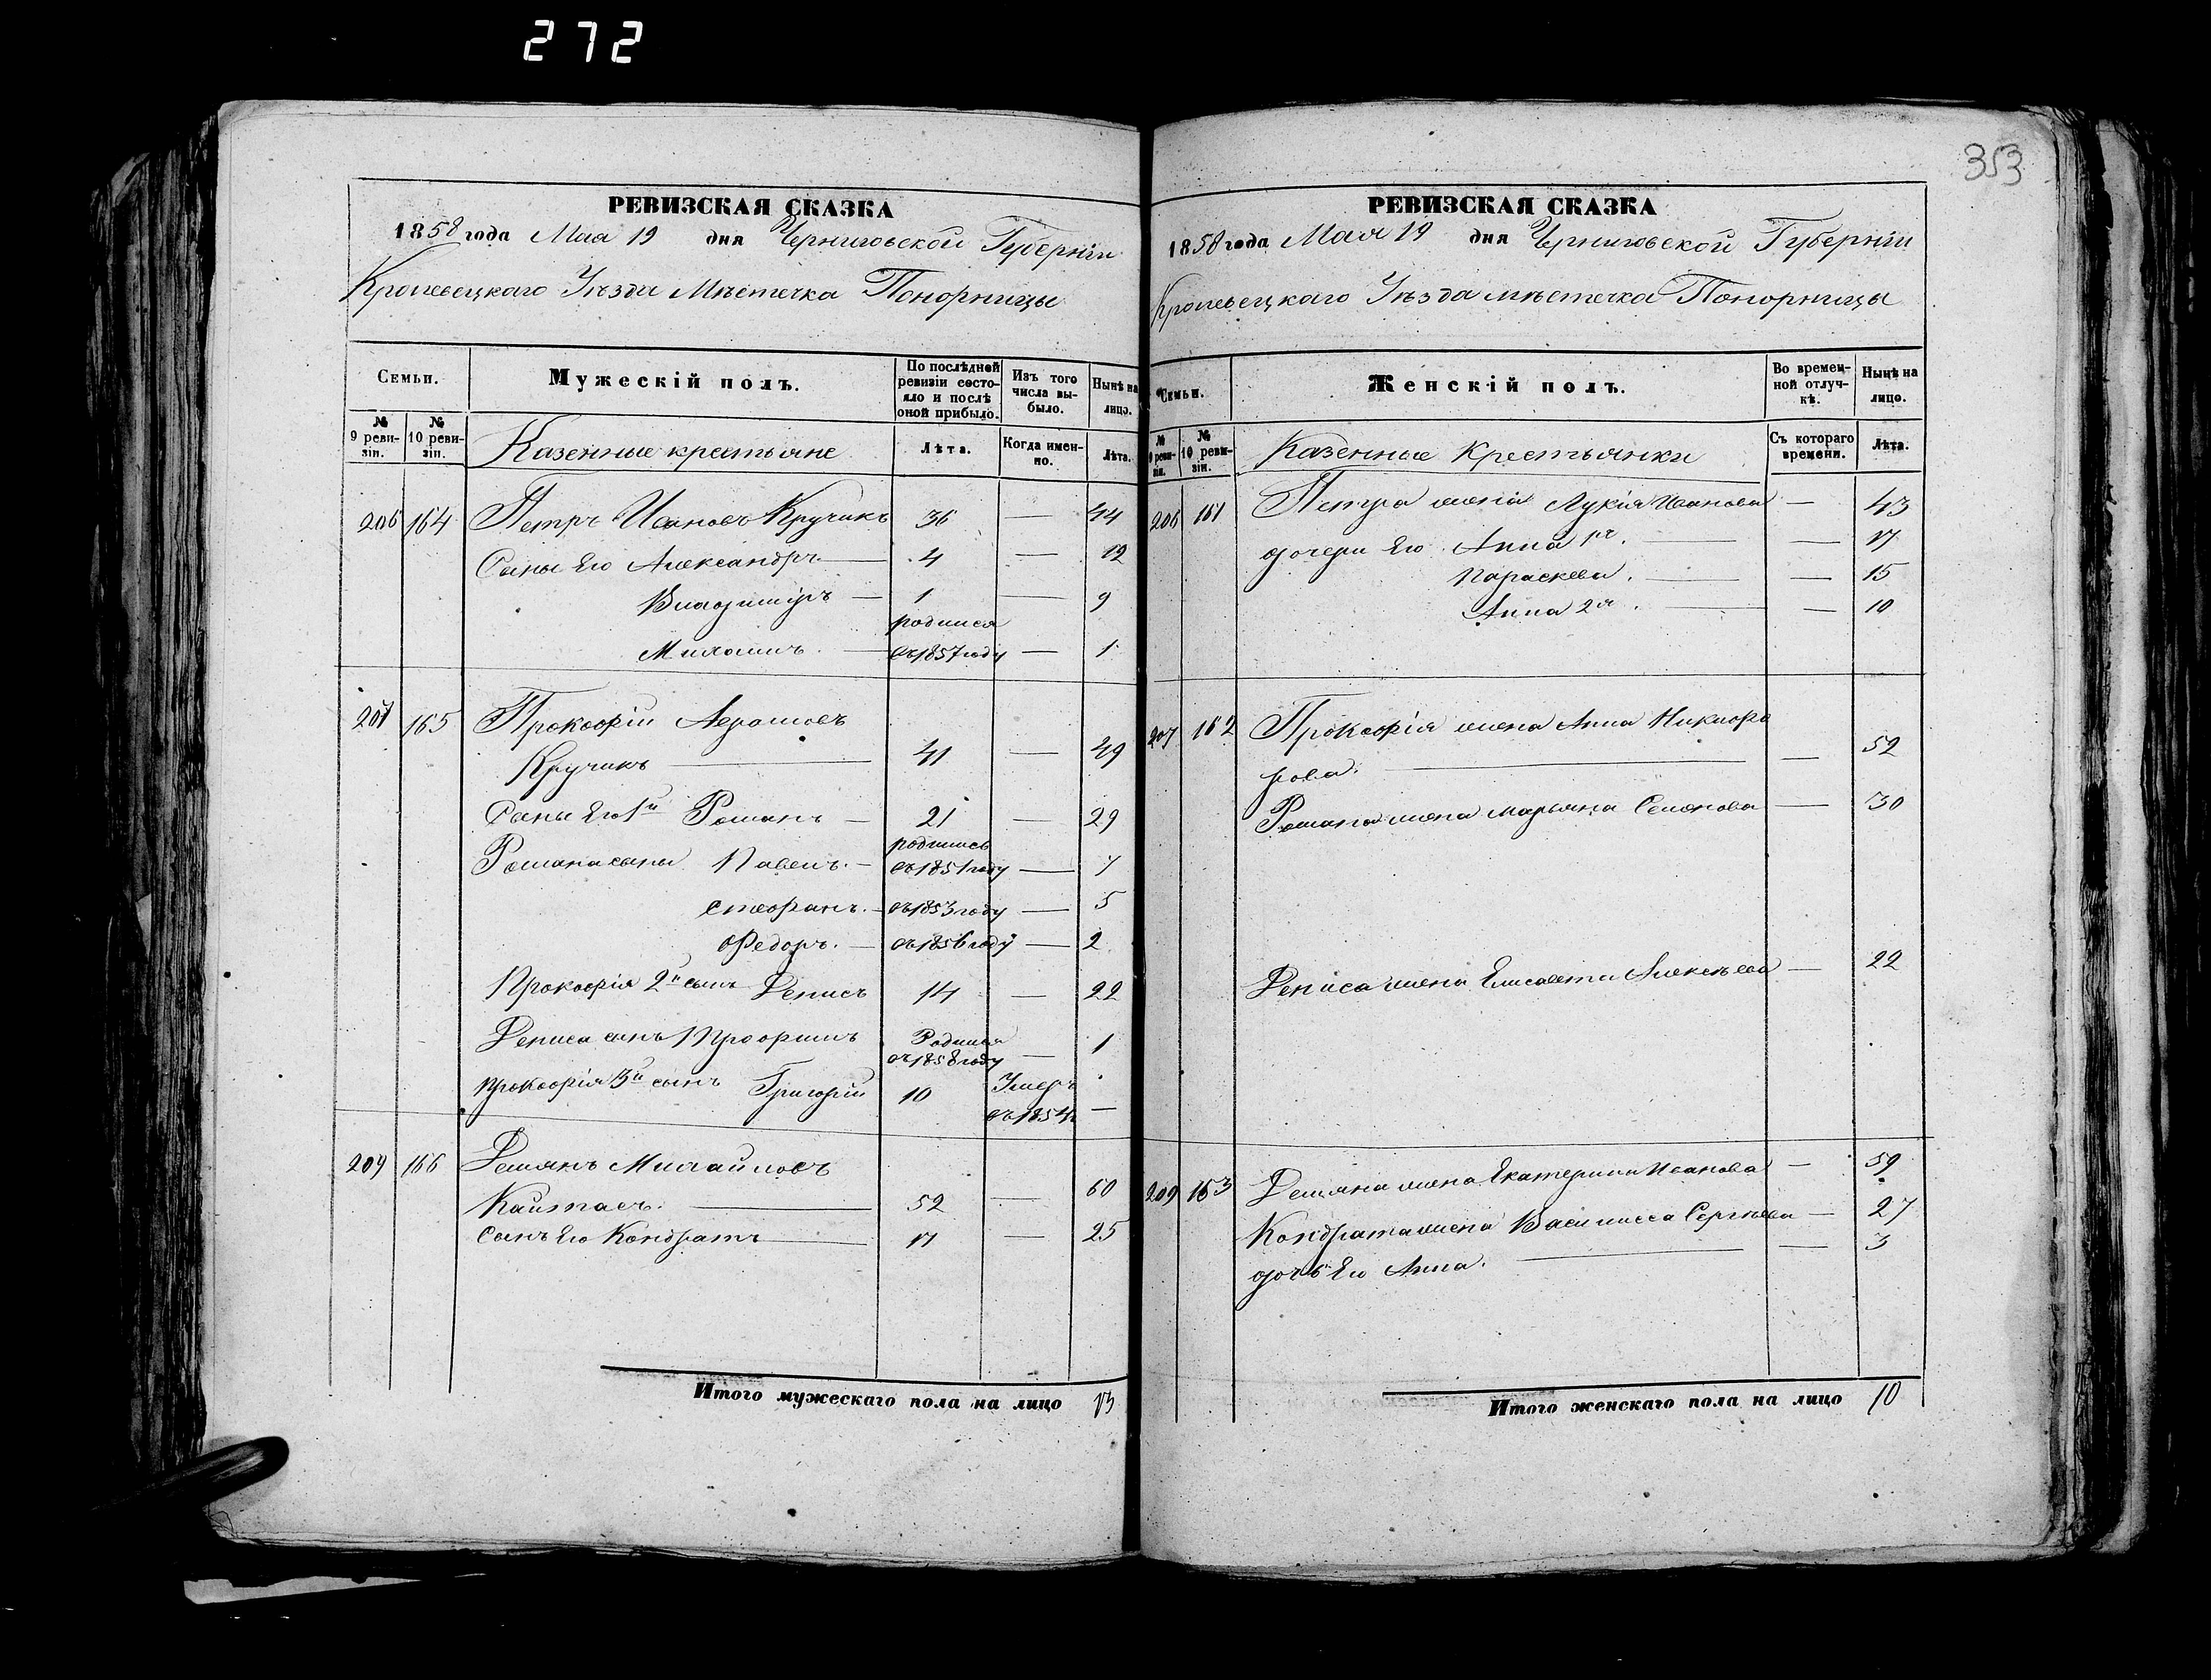 272
353
РЕВИЗСКАЯ СКАЗКА
1858 года Мая 19 дня Черниговской Губерніи
Кролевецкаго Уѣзда Мѣстечка Понорницы
Семьи. Мужескій полъ. По послѣдней ревизіи состояло и послѣ оной прибыло. Изъ того числа выбыло. Нынѣ на лицо.
№ 9 ревизіи. № 10 ревизіи. Казенные крестьяне Лѣта. Когда именно. Лѣта.
206 164 Петръ Ивановъ Кручикъ 36 — 44
Сыны Его Александръ — 4 — 12
Владимиръ — 1 — 9
родился
въ 1857 году — 1
207 165 Прокофій
Кручикъ — 41 — 49
Сыны Его 1й Романъ — 21 — 29
родились
Романа сыны Павелъ. — въ 1851 году — 7
Стефанъ. — въ 1853 году — 5
Федоръ. — въ 1856 году — 2
Прокофія 2й сынъ Денисъ 14 — 22
Дениса сынъ Родился
въ 1858 году — 1
Прокофія 3й сынъ Григорій 10 Умеръ
въ 1854 —
209 166 Демянъ Михайловъ
52 — 60
Сынъ Его Кондратъ — 17 — 25
Итого мужескаго пола на лицо 13
РЕВИЗСКАЯ СКАЗКА
1858 года Мая 19 дня Черниговской Губерніи
Кролевецкаго Уѣзда мѣстечка Понорницы
Семьи. Женскій полъ. Во временной отлучкѣ. Нынѣ на лицо.
№ 9 ревизіи. № 10 ревизіи. Казенные Крестьянки Съ котораго времени. Лѣта.
206 161 Петра жена Лукія Иванова — 43
дочери Его Анна 1я. — — 17
Параскева. — — 15
Анна 2я. — — 10
207 162 Прокофія жена Анна Никифо
рова. — — 52
Романа жена Марьяна Семенова — 30
Дениса жена Елисавета Алексѣева — 22
209 163 Демяна жена Екатерина Иванова — 59
Кондрата жена Василисса Сергѣева — 27
дочь Его Анна. — — 3
Итого женскаго пола на лицо 10